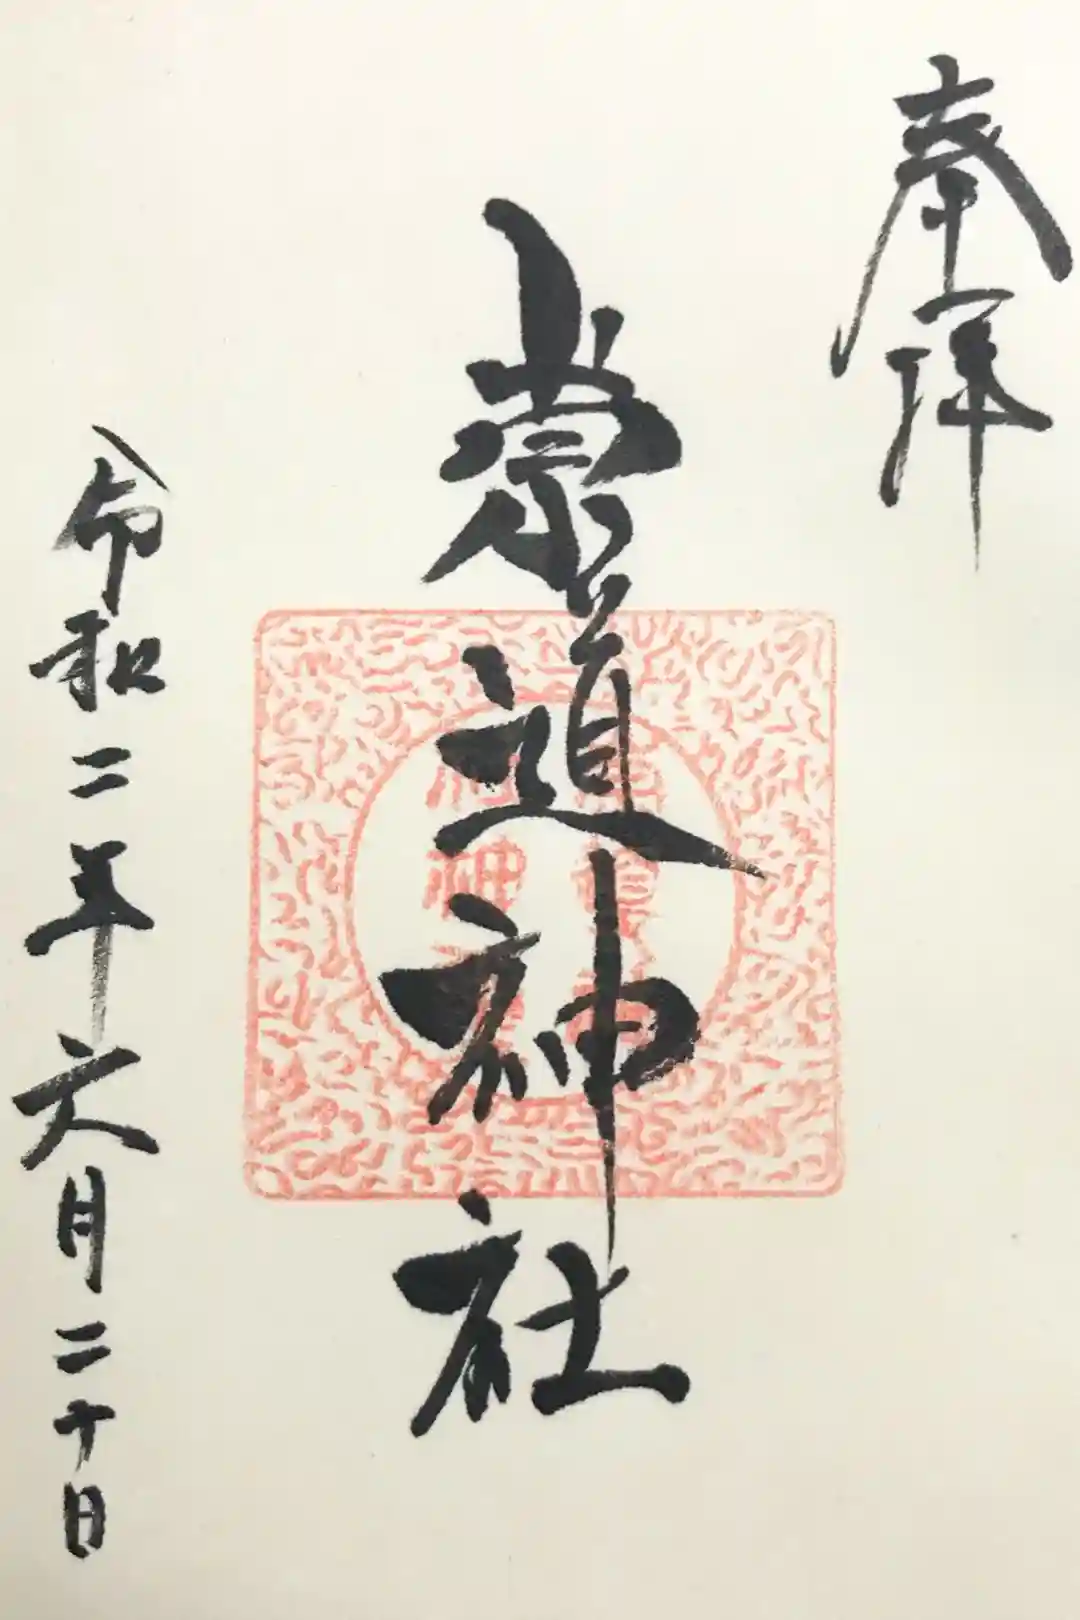 奉拝
崇道神社
令和二年六月二十日